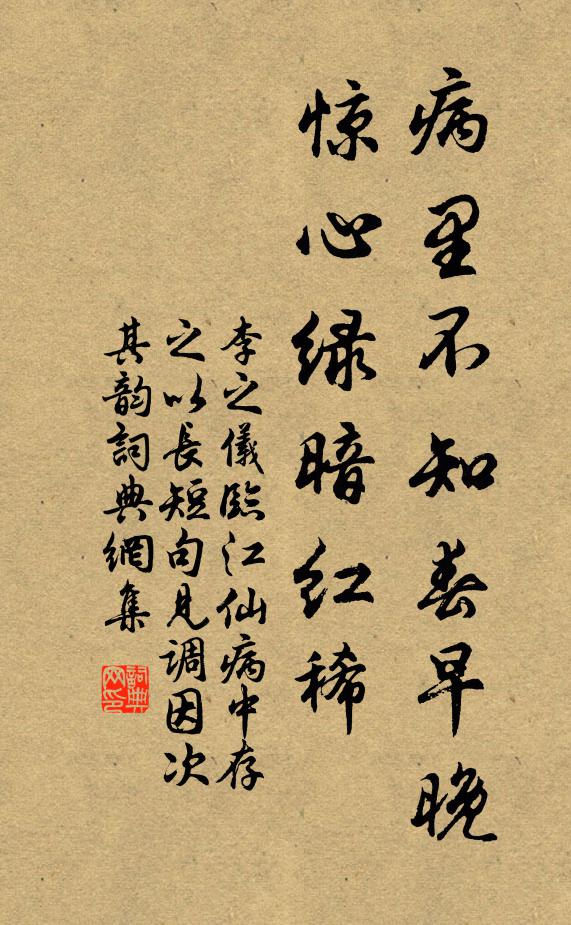 病里不知春早晚
惊心绿暗红稀
李之儀臨江仙病中存
之以長短句見调因次
其韵詞典網集
詞典网印